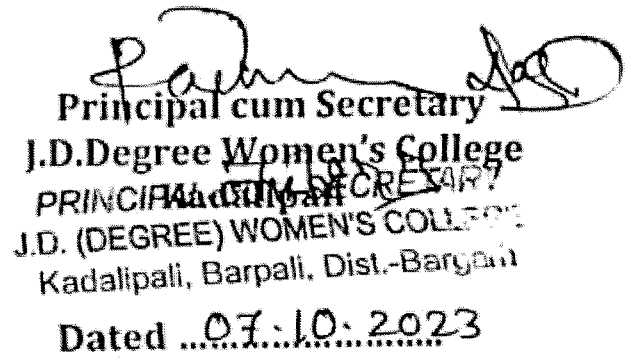 Principal cum Secretary
J.D.Degree Women's College
Kadalipali
PRINCIPAL CUM SECRETARY
J.D. (DEGREE) WOMEN'S COLLEGE
Kadalipali, Barpali, Dist.-Bargarh
Dated ...07.10.2023